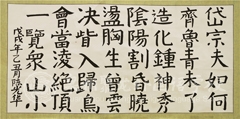 岱宗夫如何
齊魯青未了
造化鍾神秀
陰陽割昏曉
盪胸生曾雲
决眥入歸鳥
會當凌絕頂
一覽衆山小
戊戌年乙丑月